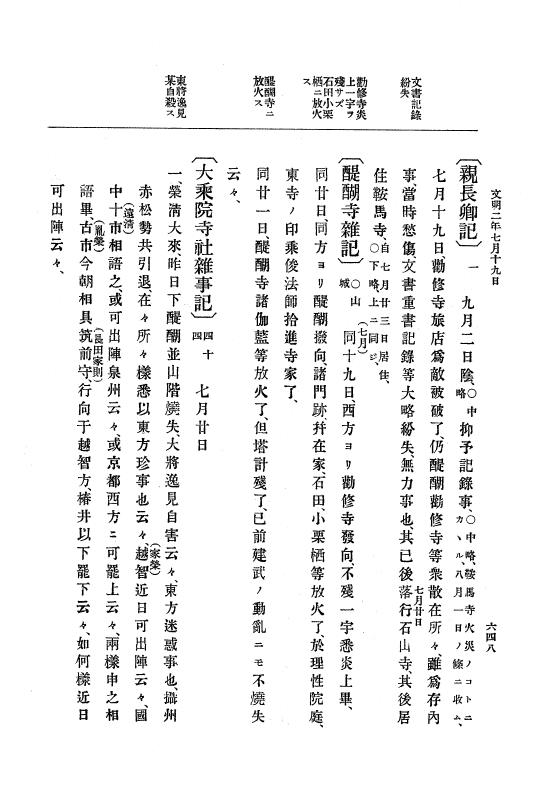 文明二年七月十九日
六四八
文書記錄
紛失
勸修寺炎
上一宇ヲ
殘サズ
石田小栗
栖ニ放火
ス
醍醐寺ニ
放火ス
東將逸見
某自殺ス
〔親長卿記〕 一 九月二日、陰、○中略 抑予記錄事、○中略、鞍馬寺火災ノコトニカヽル、八月一日ノ條ニ收ム、
七月十九日、勸修寺旅店爲敵被破了、仍醍醐勸修寺等衆散在所々、雖爲存內
事、當時愁傷、文書重書記錄等大略紛失、無力事也、其已後落行石山寺、七月廿日其後居
住鞍馬寺、自七月廿三日居住、○下略、上ニ同ジ、
〔醍醐寺雜記〕 ○山城 同(七月)十九日、西方ヨリ勸修寺發向、不殘一宇悉炎上畢、
同廿日、同方ヨリ醍醐撥向諸門跡、幷在家、石田、小栗栖等放火了、於理性院庭、
東寺ノ印乘俊法師拾進寺家了、
同廿一日、醍醐寺諸伽藍等放火了、但塔計殘了、已前建武ノ動亂ニモ不燒失
云々、
〔大乘院寺社雜事記〕 四十四 七月廿日
一、榮淸大來、昨日下醍醐並山階燒失、大將逸見自害云々、東方迷惑事也、攝州
赤松勢共引退在々所々、樣悉以東方珍事也云々、越智(家榮)近日可出陣云々、國
中十市(遠淸)相語之、或可出陣泉州云々、或京都西方ニ可罷上云々、兩樣申之、相
語畢、古市(胤榮)今朝相具筑前守(長田家則)、行向于越智方、椿井以下罷下云々、如何樣近日
可出陣云々、